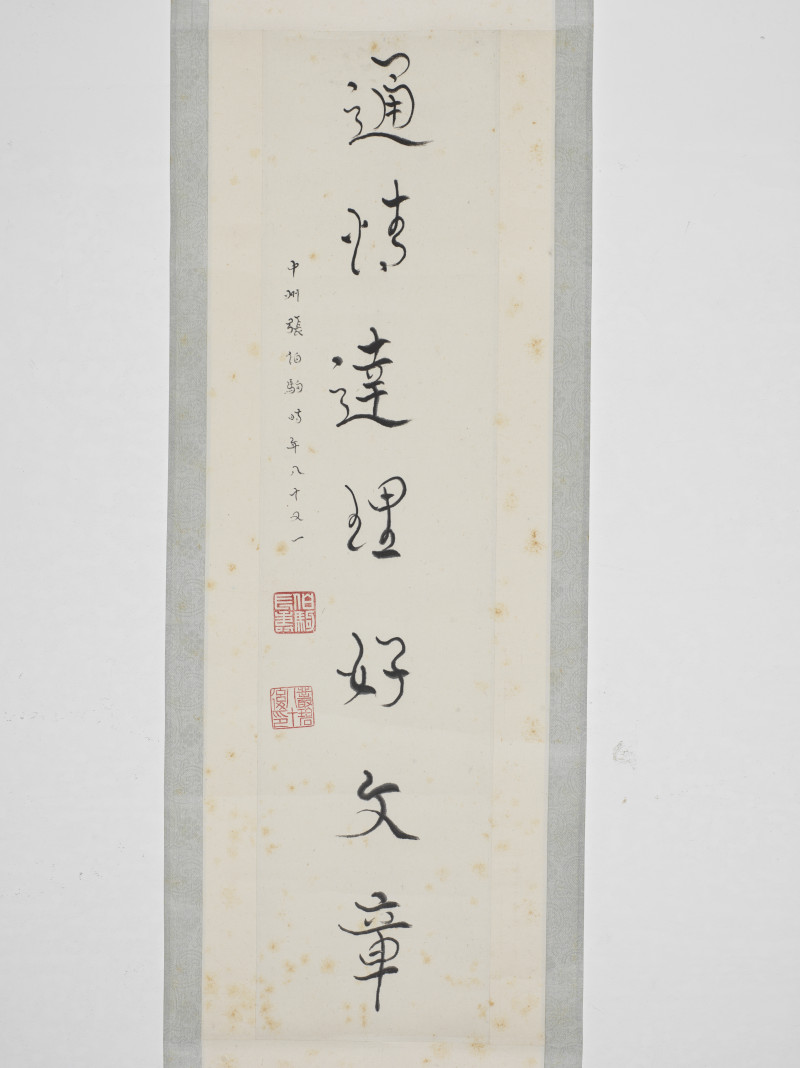 通情達理好文章
中州張伯駒時年八十又一
伯駒長壽
叢碧八十後印